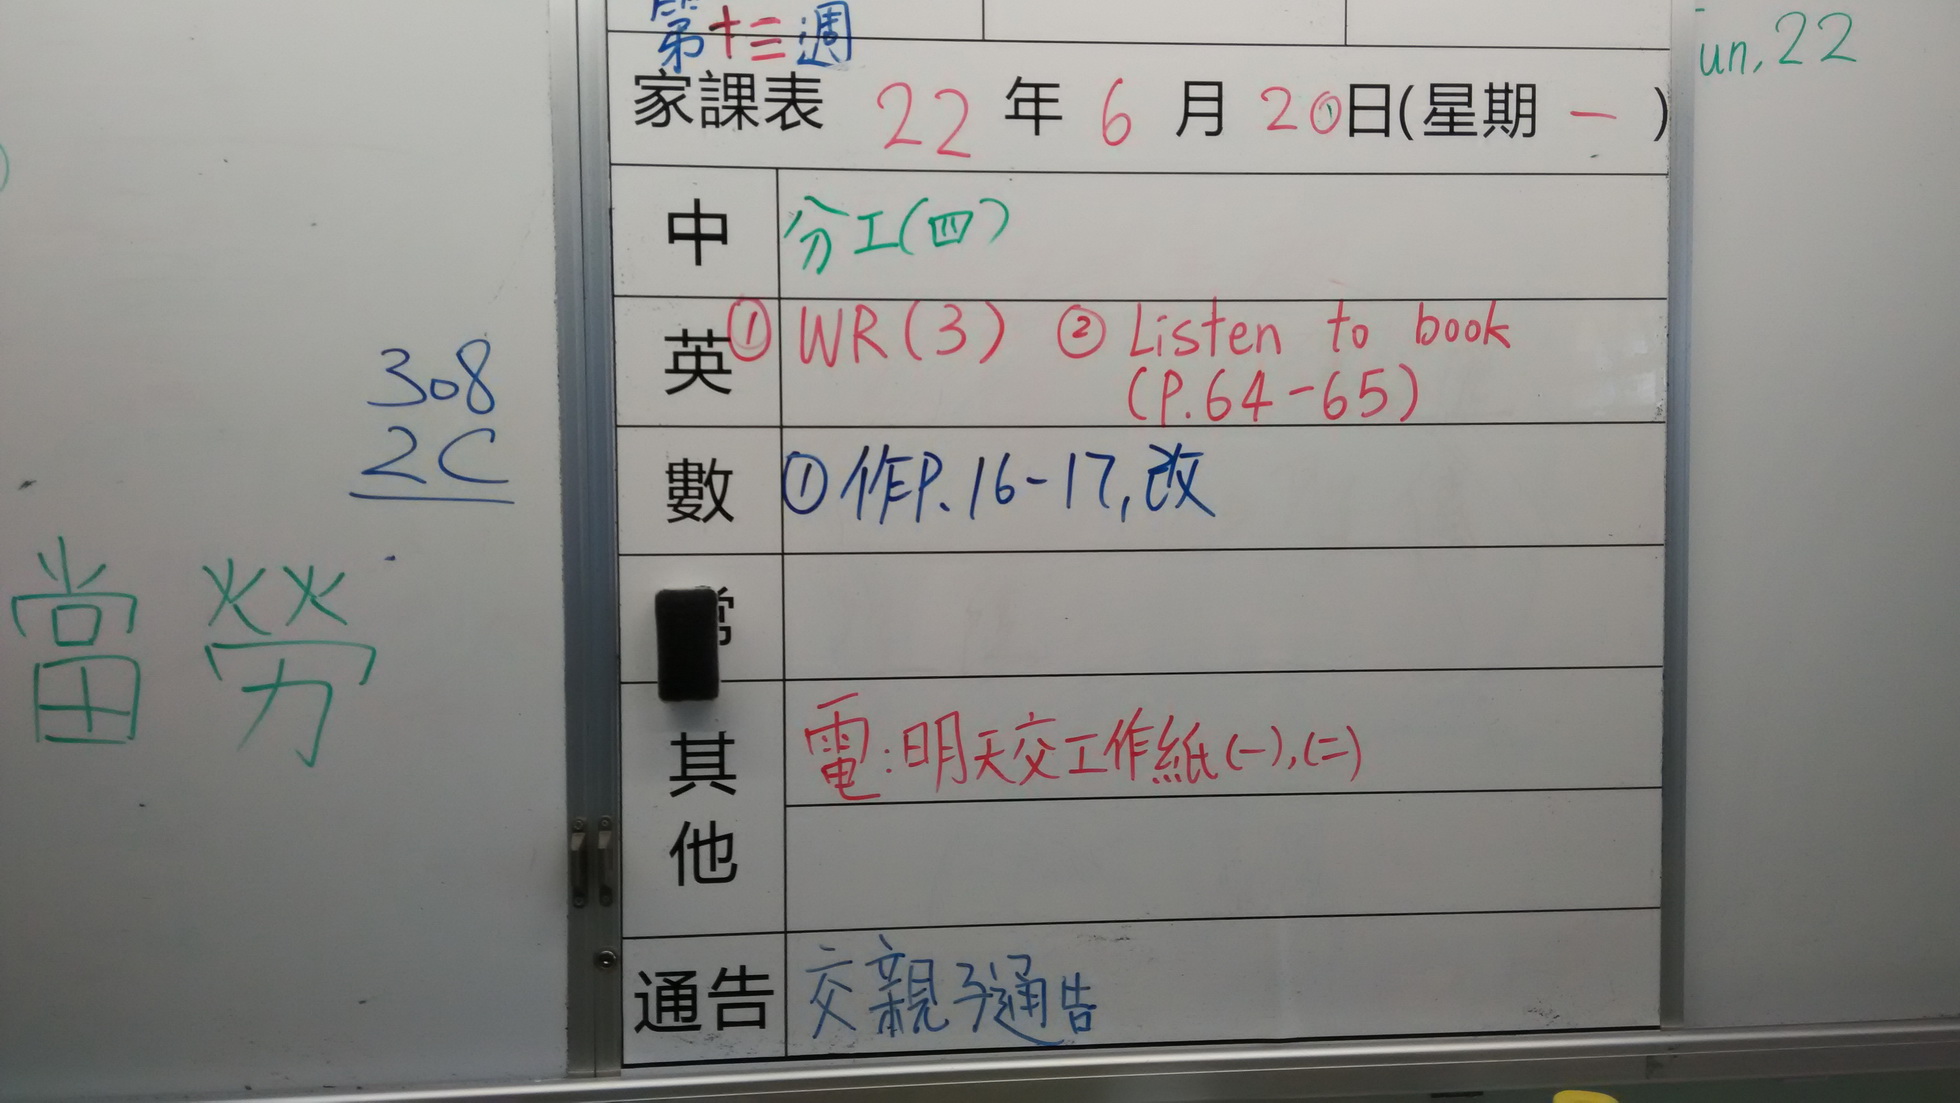 第十三週
un, 22
家課表 22 年 6 月 20日(星期 一 )
中 分工(四)
英 ① WR(3) ② Listen to book
(P.64-65)
308
2C
數 ①作P.16-17,改
當 勞
常
其他
電:明天交工作紙(一),(二)
通告 交親子通告